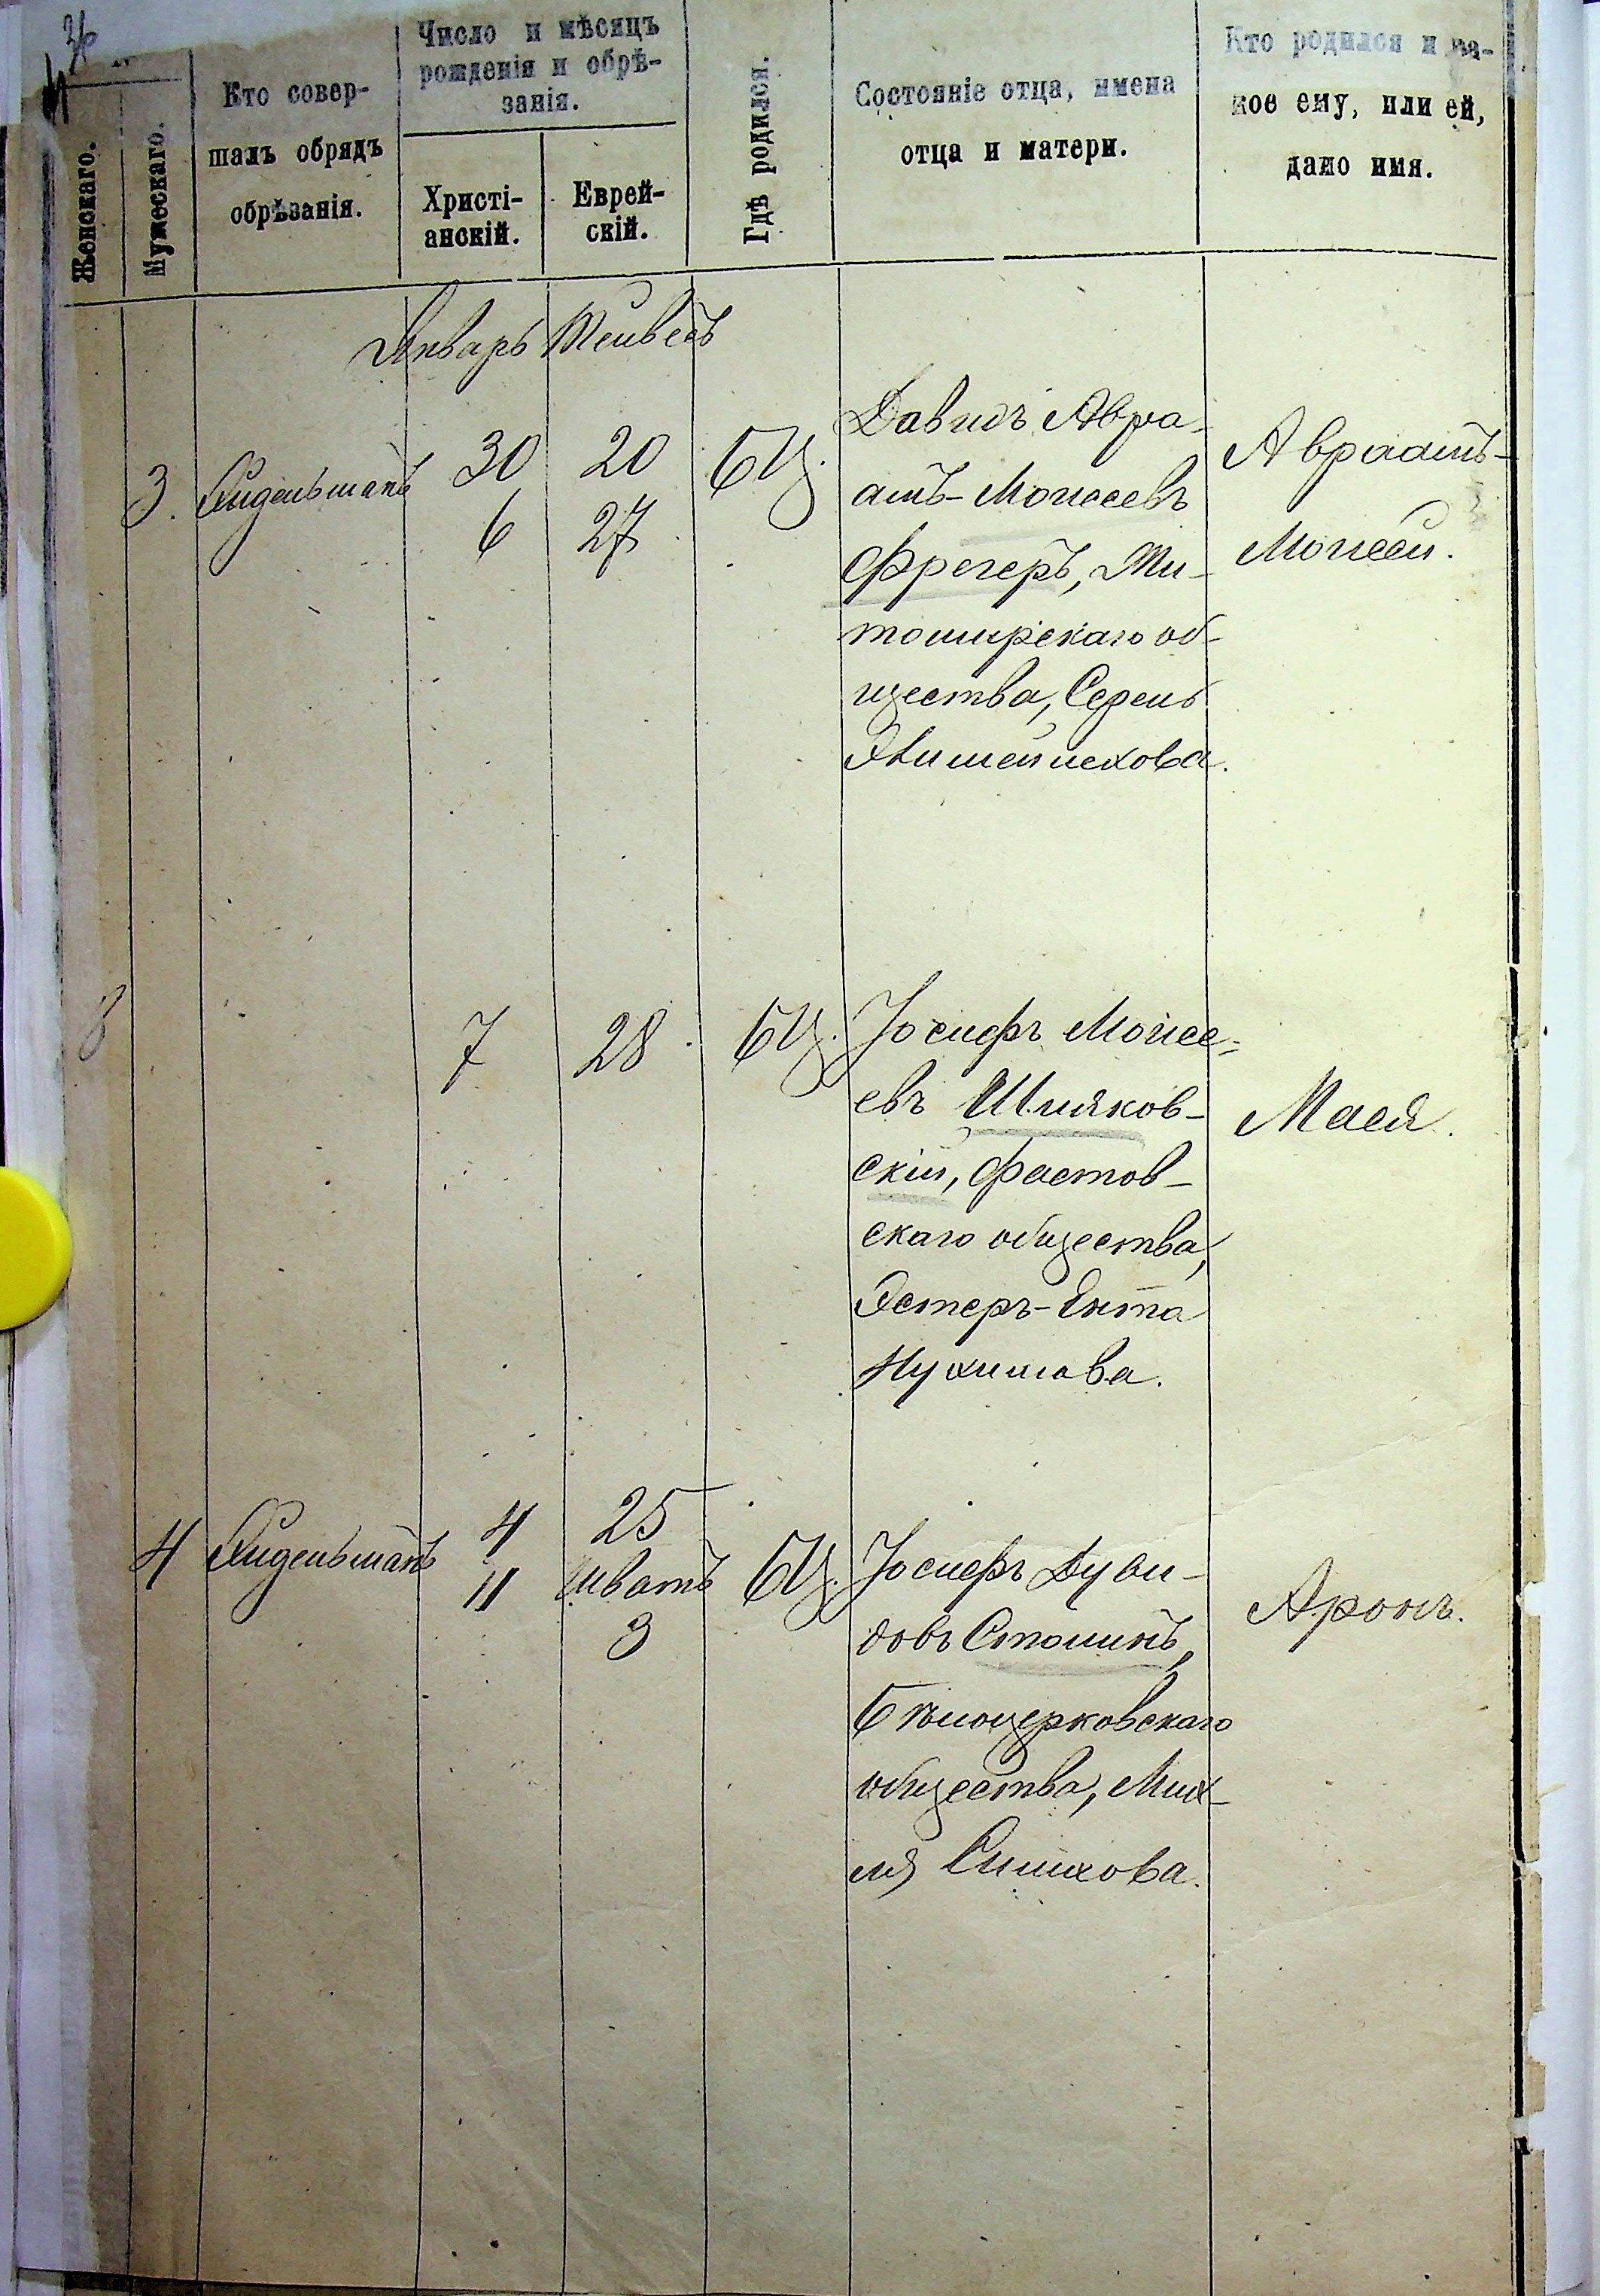 36
№
Женскаго.
Мужескаго.
Кто совер-
шалъ обрядъ
обрѣзанія.
Число и мѣсяцъ
рожденія и обрѣ-
занія.
Христі-
анскій.
Еврей-
скій.
Гдѣ родился.
Состояніе отца, имена
отца и матери.
Кто родился и ка-
кое ему, или ей,
дано имя.
Январь Тейвесъ
3. 30 20 БЦ.
6 27
Давидъ Авра-
амъ-Моисеевъ
Фрегеръ, Жи-
томирскаго об-
щества, Серель
Авраамъ-
Моисей.
8 7 28 БЦ.
Іосифъ Мойсе-
евъ Шляхов-
скій, Фастов-
скаго общества,
Эстеръ-Ента
Нухимова.
Мася.
4 4 25 БЦ.
11 Шватъ
3
Іосифъ Дуви-
довъ Столинъ,
Бѣлоцерковскаго
общества, Мих-
ля Симхова.
Аронъ.